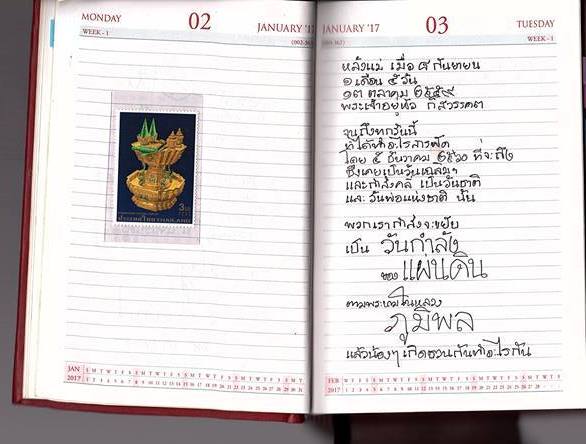 MONDAY 02 JANUARY '17
WEEK - 1 (002-363)
3 บาท
ประเทศไทย THAILAND
JAN S M T W T F S S M T W T F S S M T W T F S S M T W T F S S M T
2017 1 2 3 4 5 6 7 8 9 10 11 12 13 14 15 16 17 18 19 20 21 22 23 24 25 26 27 28 29 30 31
JANUARY '17 03 TUESDAY
WEEK - 1
หลังแม่ เมื่อ ๘ กันยายน
๑ เดือน ๕ วัน
๑๓ ตุลาคม ๒๕๕๙
พระเจ้าอยู่หัว ก็สวรรคต
จนถึงทุกวันนี้
โดย ๕ ธันวาคม ๒๕๖๐ ที่จะถึง
ซึ่งเคยเป็นวันเฉลิมฯ
และกำลังคลี่ เป็นวันชาติ
และวันพ่อแห่งชาติ นั้น
พวกเรากำลังจะขยับ
เป็น วันกำลัง
ของ แผ่นดิน
ตามพระนามในหลวง
ภูมิพล
แล้วน้องๆ เกิด กัน กัน
FEB W T F S S M T W T F S S M T W T F S S M T W T F S S M T
2017 1 2 3 4 5 6 7 8 9 10 11 12 13 14 15 16 17 18 19 20 21 22 23 24 25 26 27 28